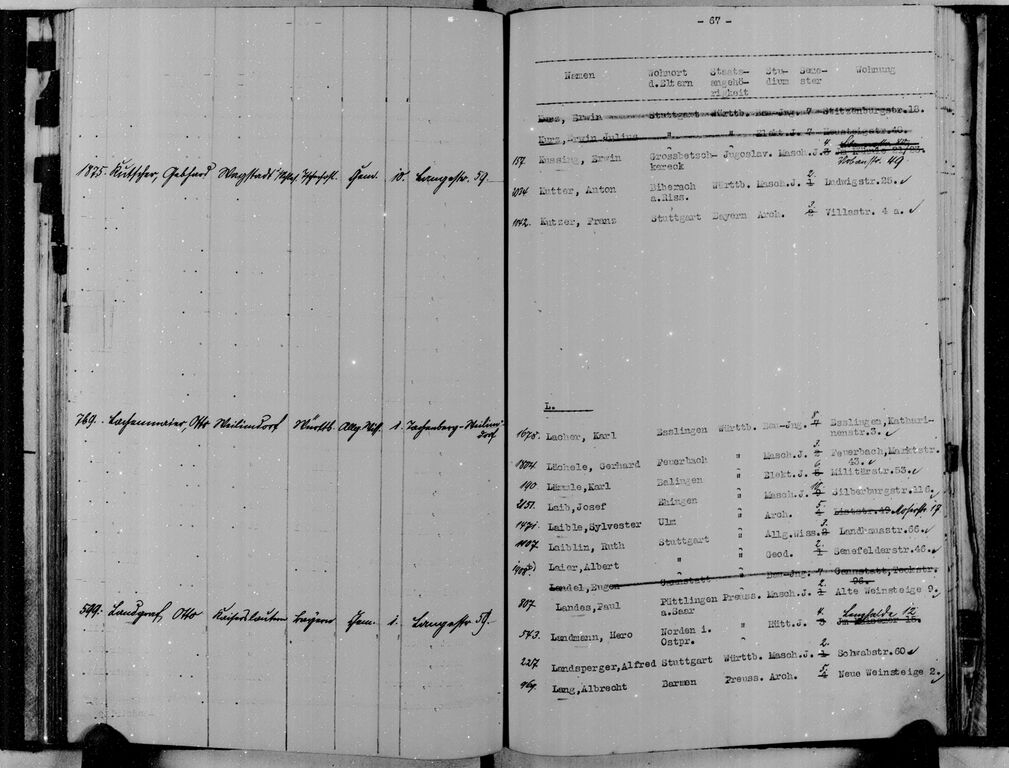 1875. Kutscher, Gebhard Wagstadt Chem. 10. Langestr. 59.
769. Lachenmaier, Otto Weilimdorf Württb. Allg. Wiss. 1. Weilimdorf
599. Landgraf, Otto Kaiserslautern Bayern Chem. 1. Langestr. 59.
- 67 -
Namen Wohnort d.Eltern Staatsangehörigkeit Studium Semester Wohnung
Kurz, Erwin Stuttgart Württb. Bau-Jng. 7 Stitzenburgstr.18.
Kurz, Erwin Julius " " Elekt.J. 7 Neusteigstr.
157. Kussing, Erwin Grossbetsch- Jugoslav. Masch.J. 4.
kereck Urbanstr. 49
1034 Kutter, Anton Biberach Württb. Masch.J. 1 2. Ludwigstr.25.
a.Riss.
1042. Kutzer, Franz Stuttgart Bayern Arch. 3. Villastr. 4 a.
L.
1678. Lacher, Karl Esslingen Württb. Bau-Jng. 8. Esslingen,Kathari-
nenstr.3.
1804. Lächele, Gerhard Feuerbach " Masch.J. 3. Feuerbach,Marktstr.
43.
190. Karl Balingen " Elekt.J. 6. Militärstr.53.
2151. Laib,Josef Ehingen " Masch.J. 10. Silberburgstr.116.
1471. Laible,Sylvester Ulm " Arch. 5. Liststr. Moserstr 17
1107. Laiblin, Ruth Stuttgart " Allg.Wiss. 3. Landhausstr.66.
Laier,Albert " " Geod. 1 2. Senefelderstr.46.
Landel,Eugen Cannstatt " Bau-Jng. 7 Cannstatt,Teckstr.
96.
807. Landes, Paul Püttlingen Preuss. Masch.J. 1 2. Alte Weinsteige 9.
a.Saar
543. Landmann, Hero Norden i. " Hütt.J. 3 4. 12
Ostpr.
227. Landsperger,Alfred Stuttgart Württb. Masch.J. 1 2. Schwabstr.60
969. Lang,Albrecht Barmen Preuss. Arch. 4 5. Neue Weinsteige 2.